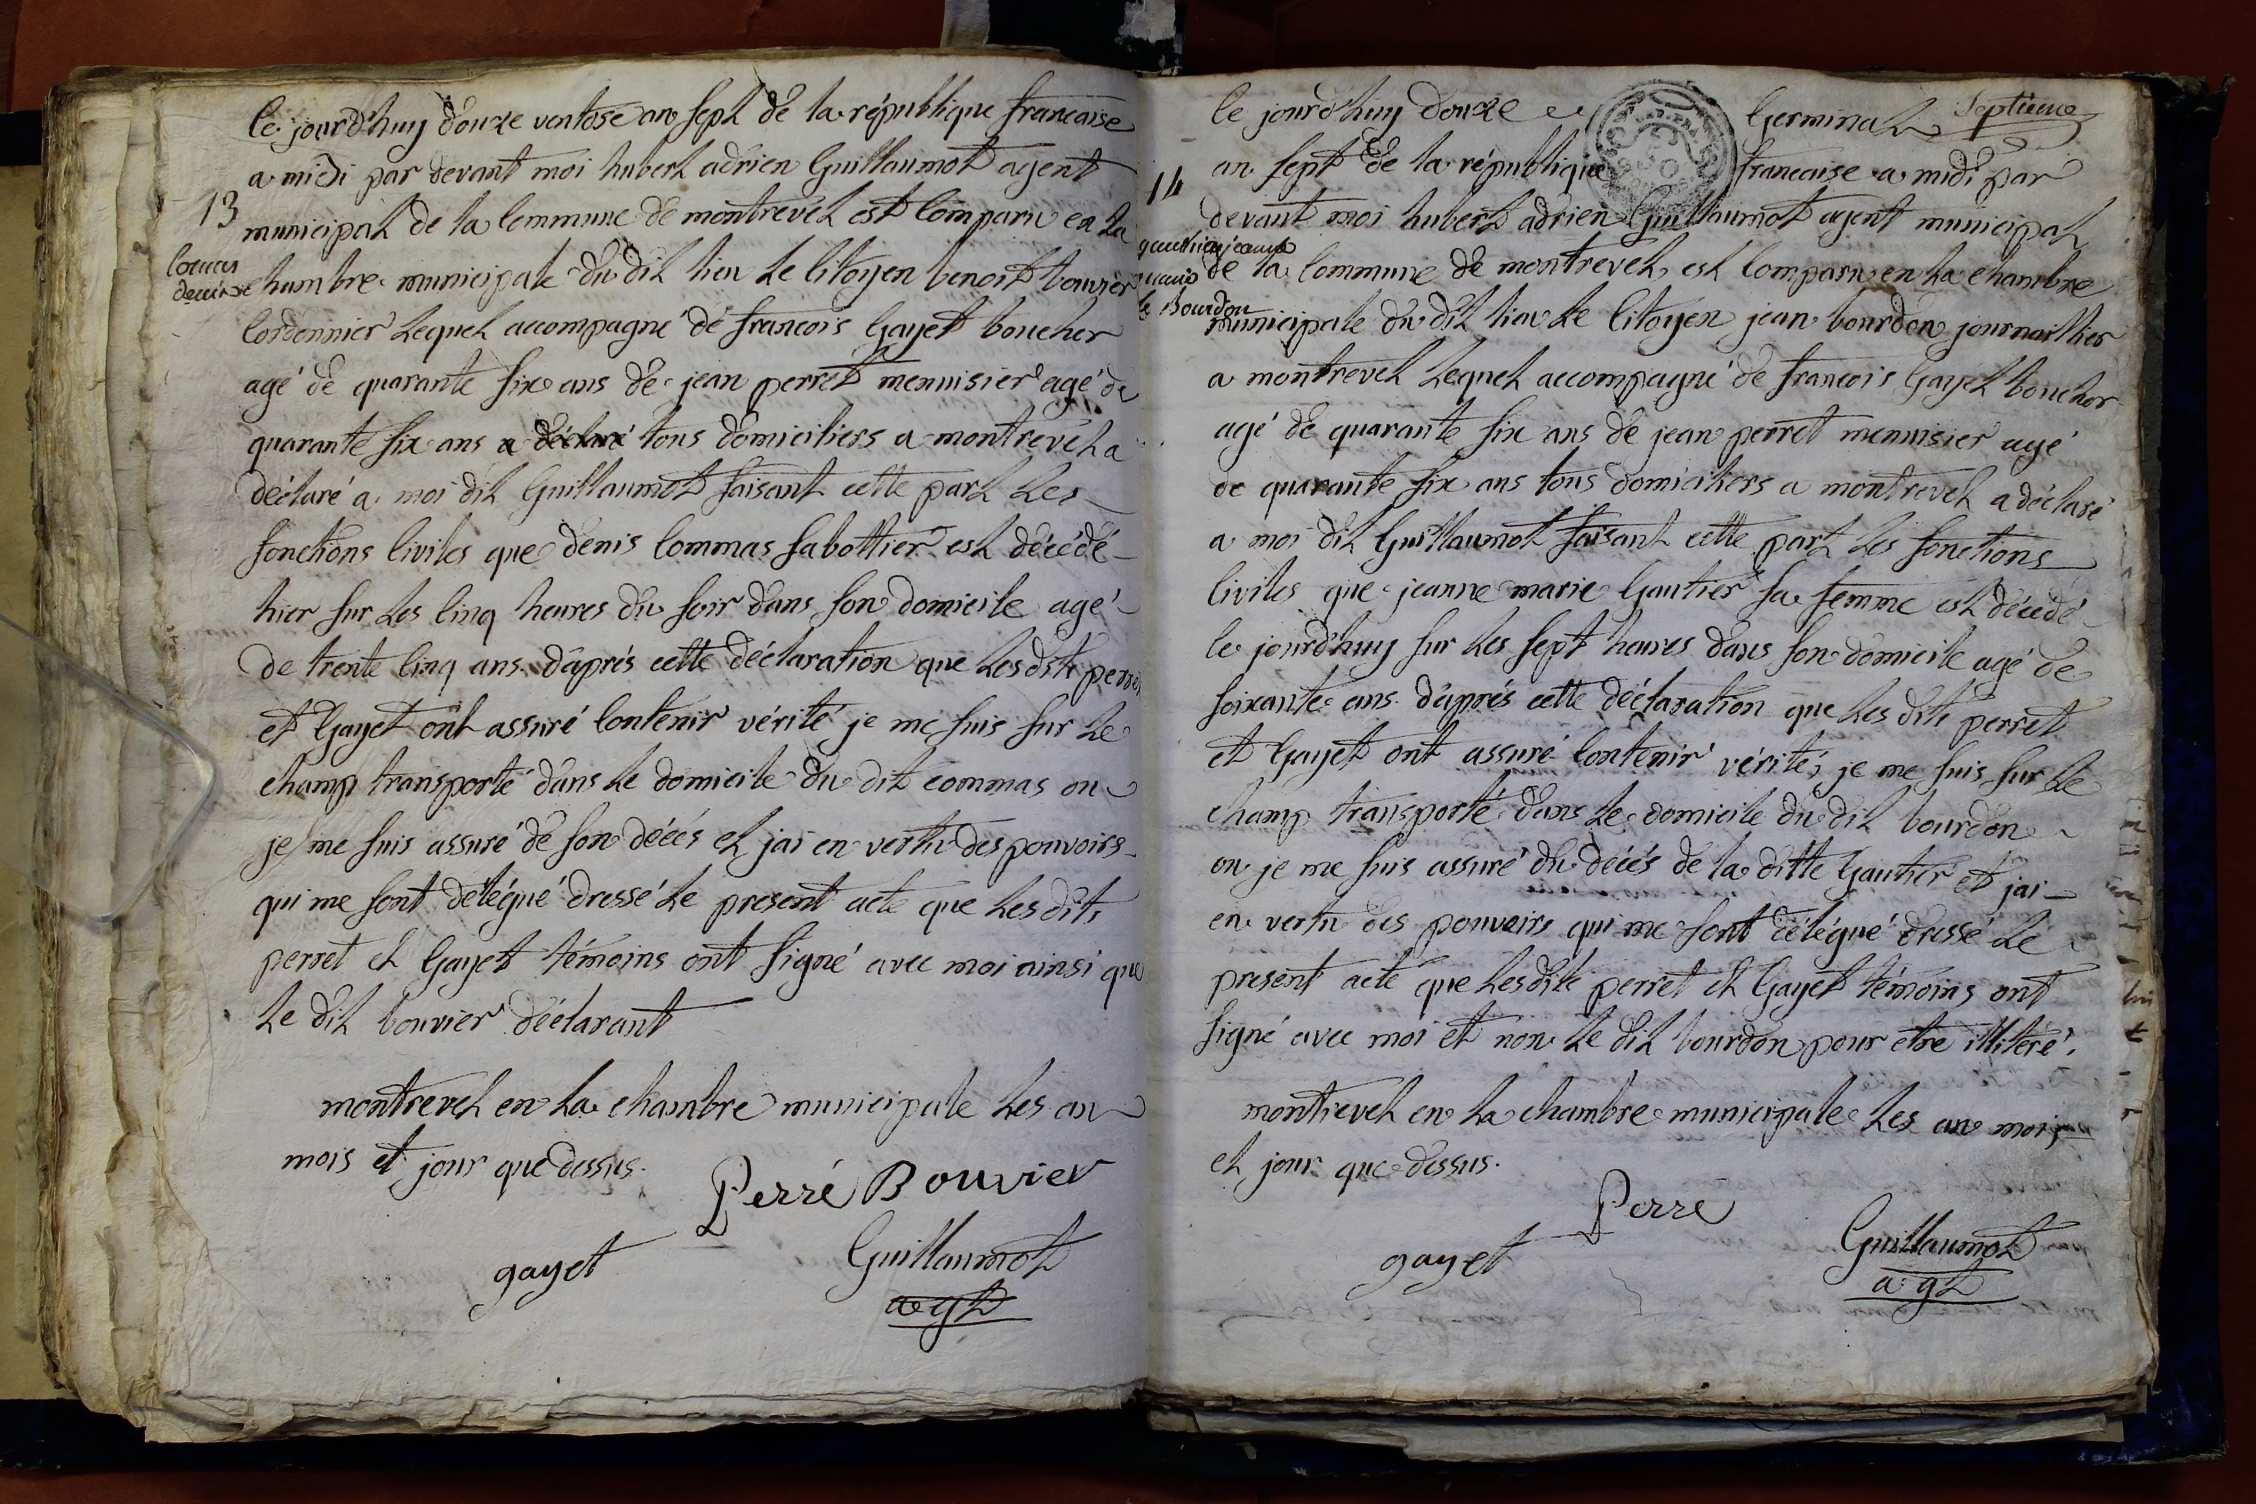 le jourd'huy douze ventose an sept de la république francaise
a midi par devant moi hubert adrien Guillaumot agent
13
municipal de la Commune de montrevel est Comparu en la
chambre municipale du dit lieu le Citoyen benoit bouvier
Cordonnier lequel accompagné de francois Gayet boucher
agé de quarante six ans de jean perret menuisier agé de
quarante six ans a déclaré tous domiciliers a montrevel a
déclaré a moi dit Guillaumot faisant cette part les
fonctions Civiles que denis Commas sabottier est décédé
hier sur les Cinq heures du soir dans son domicile agé
de trente Cinq ans d'aprés cette déclaration que lesdits perret
et Gayet ont assuré Contenir vérité je me suis sur le
champ transporté dans le domicile du dit commas ou
je me suis assuré de son décés et jai en vertu des pouvoirs
qui me sont délégué dressé le present acte que lesdits
perret et Gayet témoins ont signé avec moi ainsi que
le dit bouvier déclarant
montrevel en la chambre municipale les an
mois et jour que dessus.
Perré Bouvier
gayet Guillaumot
agt
le jourd'huy douze Germinal Septieme
an sept de la république francaise a midi par
14
devant moi hubert adrien Guillaumot agent municipal
gauthier jeanne
marie
le Bourdon
de la Commune de montrevel, est Comparu en la chambre
municipale du dit lieu le Citoyen jean bourdon journaillier
a montrevel lequel accompagné de francois Gayet boucher
agé de quarante six ans de jean perret menuisier agé
de quarante six ans tous domiciliers a montrevel a déclaré
a moi dit Guillaumot faisant cette part les fonctions
Civiles que jeanne marie Gautier sa femme est décédé
le jourd'huy sur les sept heures dans son domicile agé de
soixante ans. d'aprés cette déclaration que les dits perret
et Gayet ont assuré Contenir vérité, je me suis sur le
champ transporté dans le domicile du dit bourdon
ou je me suis assuré du décés de la ditte Gautier et jai
en vertu des pouvoirs qui me sont délégué dressé le
present acte que lesdits perret et Gayet témoins ont
signé avec moi et non le dit bourdon pour etre illitéré.
montrevel en la chambre municipale les an mois
et jour que dessus.
Perré
gayet Guillaumot
agt